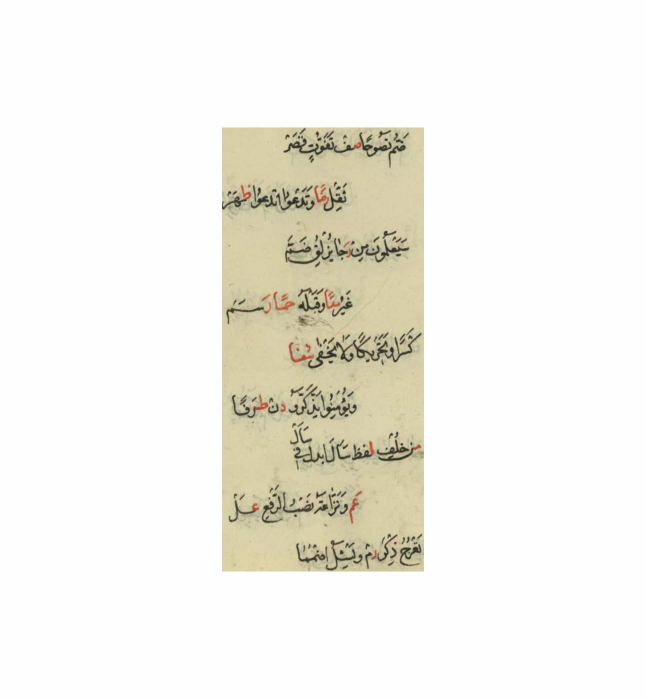 ضُمَّ نَصُوحًا صف تَفَوُّتٍ قَصَرْ
ثَقِّلْ حمًا وَتَدَّعُوا تَدْعُوا ظَهَرْ
سَيَعْلَمُونَ مِنْ رَجَا يُزْلِقُ ضَمّْ
غَيْرُ مدًا وَقَبْلَهُ حمًا رَسَمْ
كَسْرًا وَتَحْرِيكًا وَلَا يَخْفَى شفا
وَيُؤْمِنُوا يَذَّكَّرُو دن ظرفا
من خُلْفِ لفظ سَالَ ابدل في سَأَلْ
عم وَنَزَّاعَةٌ نَصْبُ الرَّفْعِ عَلْ
تَعْرُجُ ذَكِّرْ رم وَيَسْئَلُ اضْمُمَا